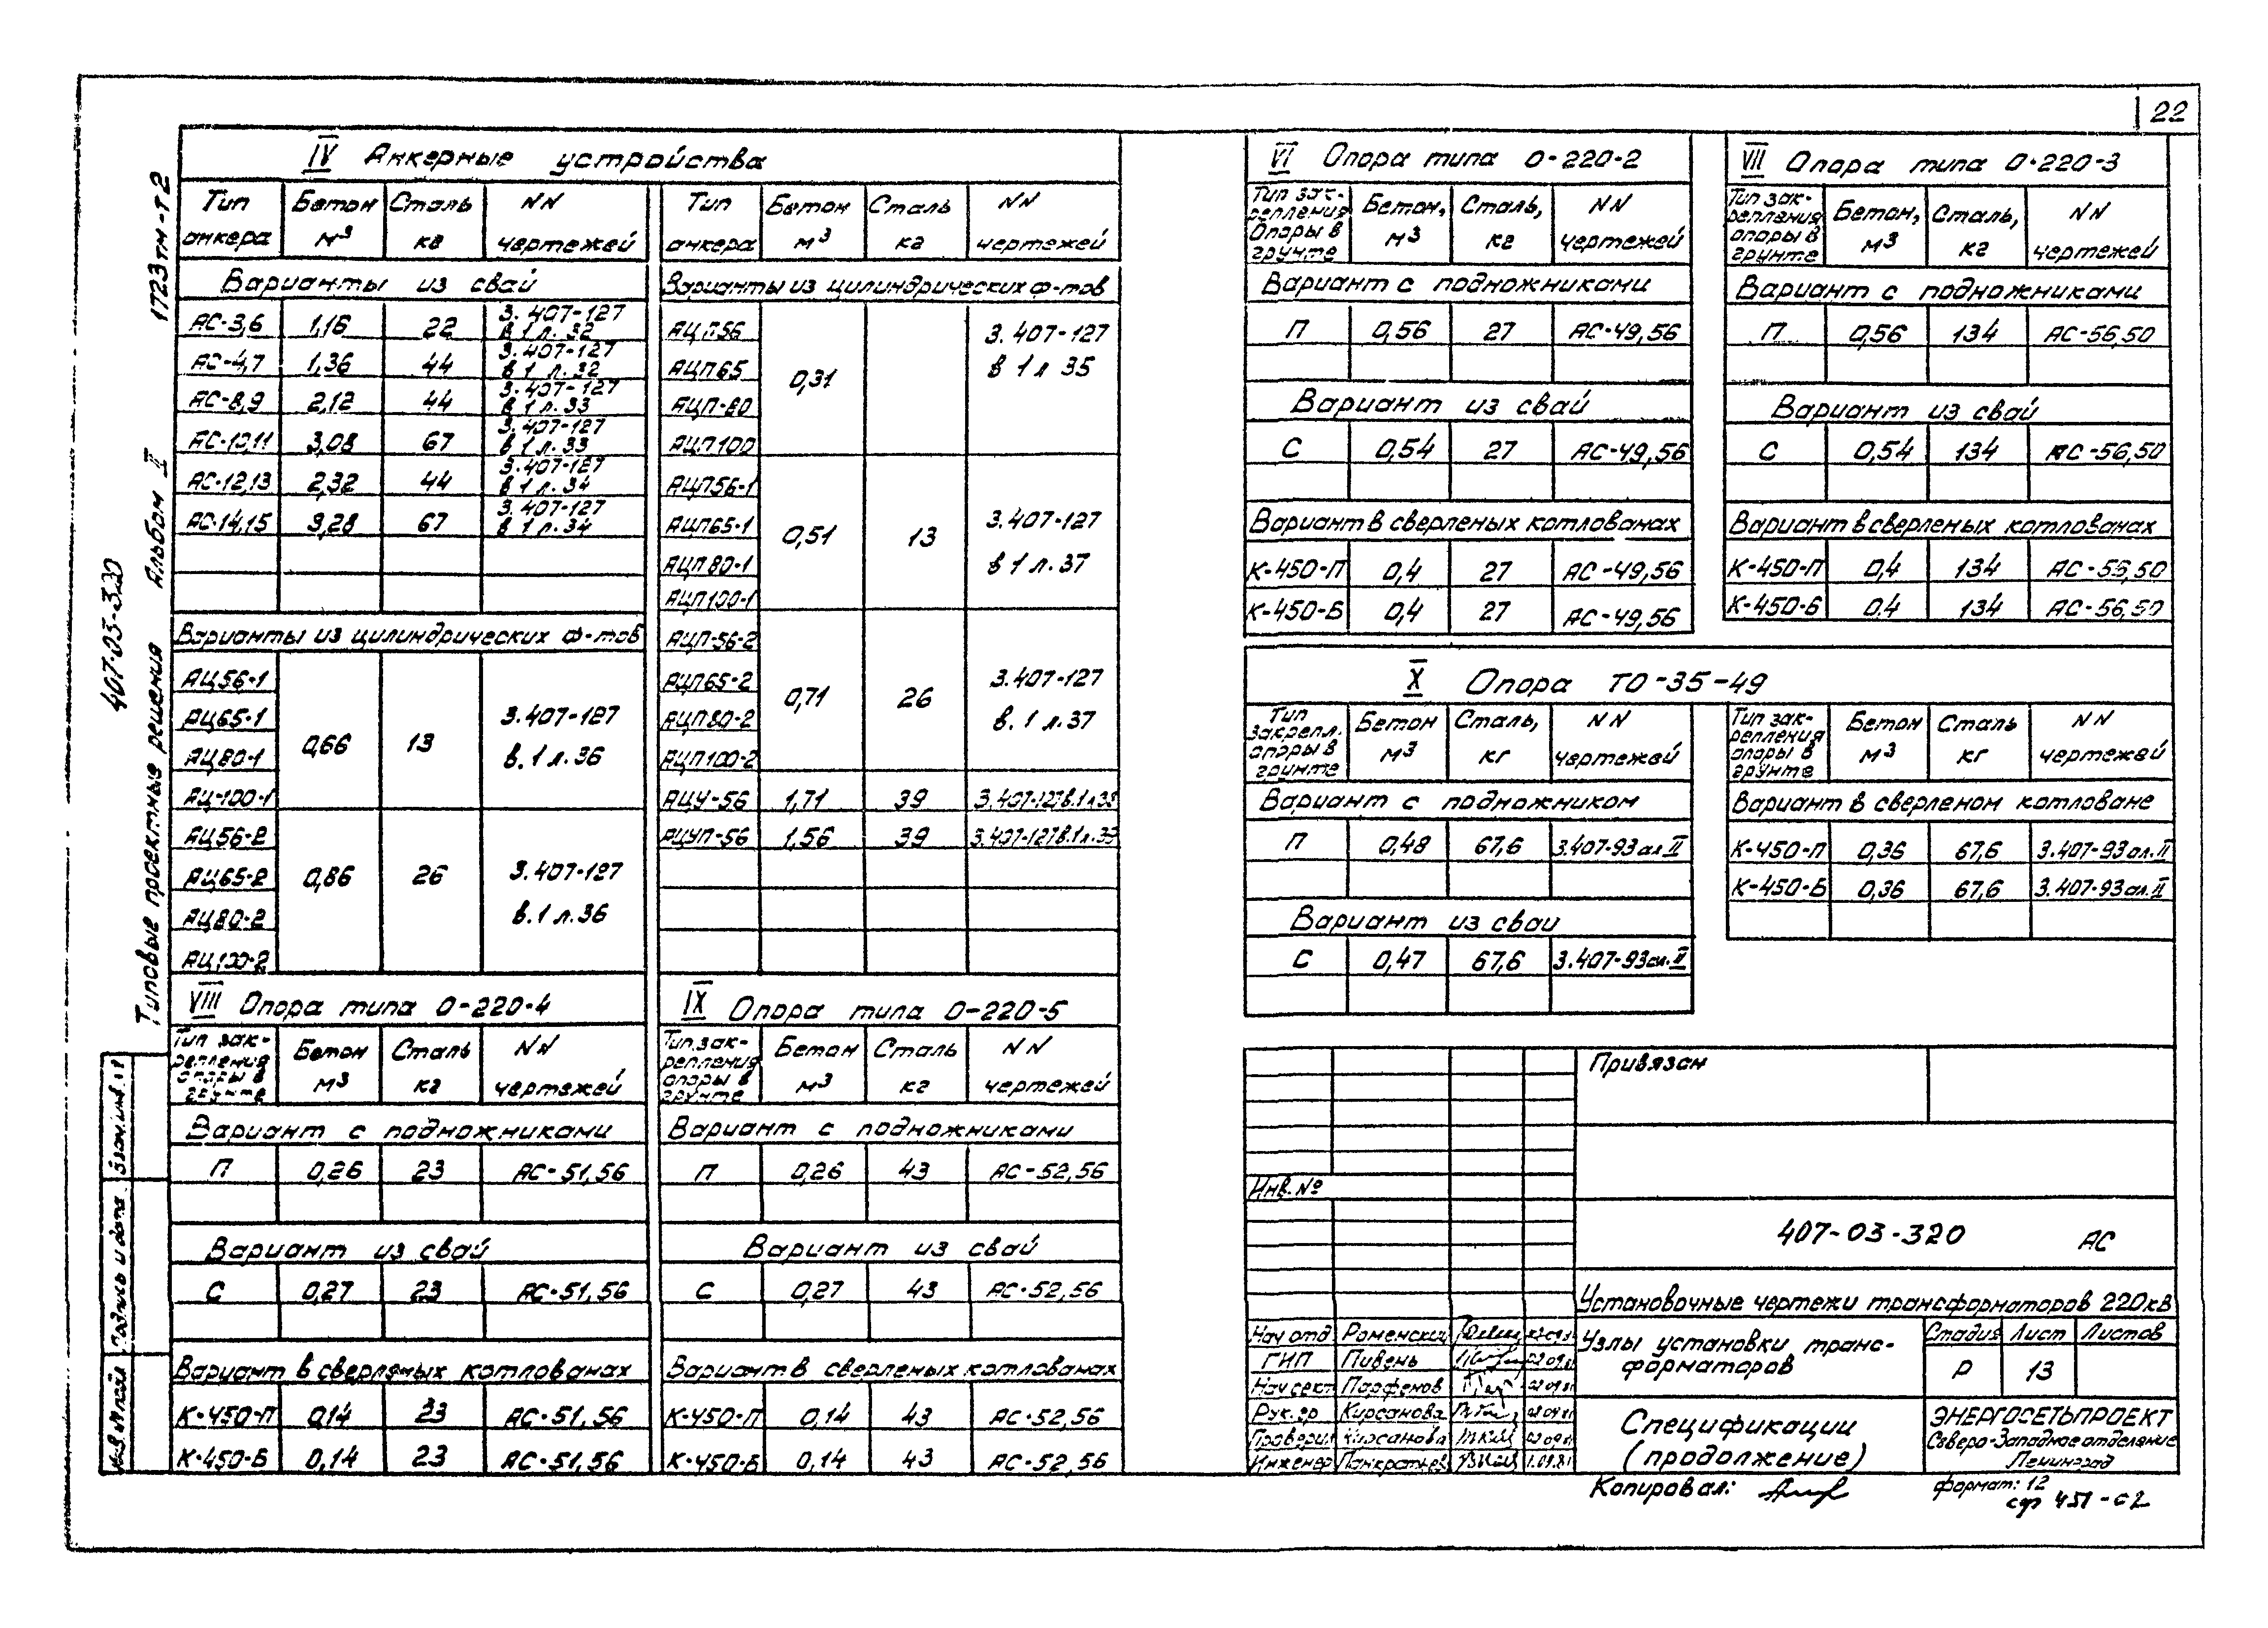 22
407-03-320
Типовые проектные решения Альбом II 1723тм-т2
IV Анкерные устройства
Тип анкера Бетон м³ Сталь кг NN чертежей
Варианты из свай
АС-3,6 1,16 22 3.407-127 в 1 л. 32
АС-4,7 1,36 44 3.407-127 в 1 л. 32
АС-8,9 2,12 44 3.407-127 в 1 л. 33
АС-10,11 3,08 67 3.407-127 в 1 л. 33
АС-12,13 2,32 44 3.407-127 в 1 л. 34
АС-14,15 3,28 67 3.407-127 в 1 л. 34
Варианты из цилиндрических ф-тов
АЦ56-1
АЦ65-1 0,66 13 3.407-127
АЦ80-1 в. 1 л. 36
АЦ-100-1
АЦ56-2
АЦ65-2 0,86 26 3.407-127
АЦ80-2 в. 1 л. 36
АЦ100-2
Тип анкера Бетон м³ Сталь кг NN чертежей
Варианты из цилиндрических ф-тов
АЦП56 3.407-127
АЦП65 0,31 в 1 л 35
АЦП-80
АЦП100
АЦП56-1
АЦП65-1 0,51 13 3.407-127
АЦП80-1 в 1 л. 37
АЦП100-1
АЦП-56-2
АЦП65-2 0,71 26 3.407-127
АЦП80-2 в. 1 л. 37
АЦП100-2
АЦУ-56 1,71 39 3.407-127 в.1 л
АЦУП-56 1,56 39 3.407-127 в.1 л.
VIII Опора типа О-220-4
Тип закрепления опоры в грунте Бетон м³ Сталь кг NN чертежей
Вариант с подножниками
П 0,26 23 АС-51,56
Вариант из свай
С 0,27 23 АС-51,56
Вариант в сверленых котлованах
К-450-П 0,14 23 АС-51,56
К-450-Б 0,14 23 АС-51,56
IX Опора типа О-220-5
Тип закрепления опоры в грунте Бетон м³ Сталь кг NN чертежей
Вариант с подножниками
П 0,26 43 АС-52,56
Вариант из свай
С 0,27 43 АС-52,56
Вариант в сверленых котлованах
К-450-П 0,14 43 АС-52,56
К-450-Б 0,14 43 АС-52,56
VI Опора типа О-220-2
Тип закрепления Опоры в грунте Бетон, м³ Сталь, кг NN чертежей
Вариант с подножниками
П 0,56 27 АС-49,56
Вариант из свай
С 0,54 27 АС-49,56
Вариант в сверленых котлованах
К-450-П 0,4 27 АС-49,56
К-450-Б 0,4 27 АС-49,56
VII Опора типа О-220-3
Тип закрепления опоры в грунте Бетон, м³ Сталь, кг NN чертежей
Вариант с подножниками
П 0,56 134 АС-56,50
Вариант из свай
С 0,54 134 АС-56,50
Вариант в сверленых котлованах
К-450-П 0,4 134 АС-56,50
К-450-Б 0,4 134 АС-56,50
X Опора ТО-35-49
Тип закрепл. опоры в грунте Бетон м³ Сталь, кг NN чертежей
Вариант с подножником
П 0,48 67,6 3.407-93 ал. II
Вариант из сваи
С 0,47 67,6 3.407-93 ал. II
Тип закрепления опоры в грунте Бетон м³ Сталь кг NN чертежей
Вариант в сверленом котловане
К-450-П 0,36 67,6 3.407-93 ал. II
К-450-Б 0,36 67,6 3.407-93 ал. II
Привязан
Инв. №
407-03-320 АС
Установочные чертежи трансформаторов 220кВ
Нач отд Роменский
ГИП Пивень
Нач сект Парфенов
Рук. гр Кирсанова
Проверил Кирсанова
Инженер Панкратьев
Узлы установки трансформаторов
Стадия Лист Листов
Р 13
Спецификации
(продолжение)
ЭНЕРГОСЕТЬПРОЕКТ
Северо-Западное отделение
Ленинград
Копировал: формат: 12
сф 451-02
Взам.инв.
Подпись и дата